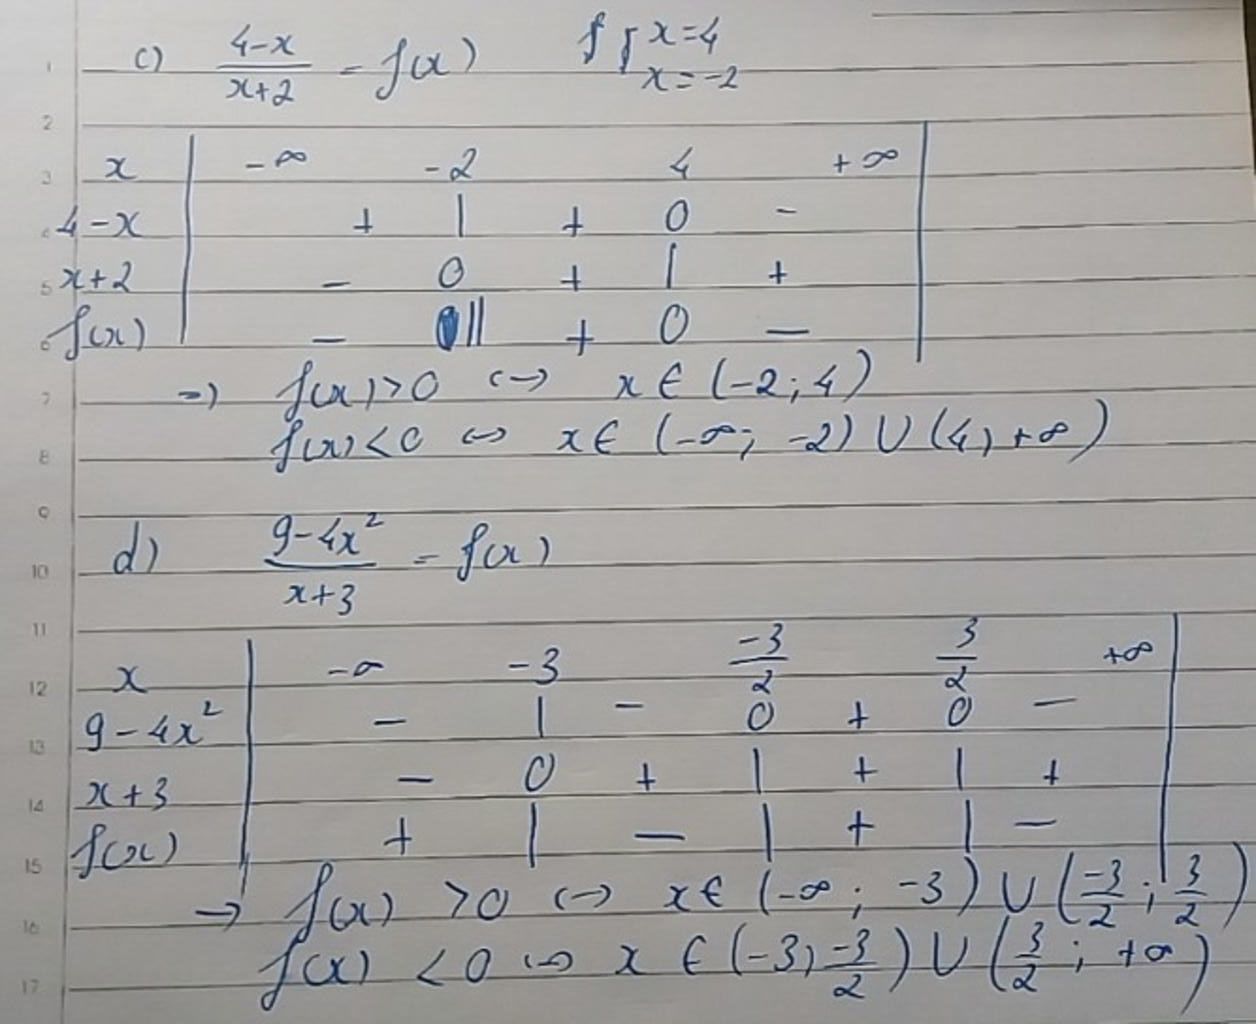 c) (4-x)/(x+2) = f(x) { x=4
x=-2
x | -∞ -2 4 +∞ |
4-x | + | + 0 -
x+2 | - 0 + | +
f(x) | - || + 0 -
=> f(x)>0 <-> x ∈ (-2; 4)
f(x)<0 <-> x ∈ (-∞; -2) ∪ (4, +∞)
d) (9-4x²)/(x+3) = f(x)
x | -∞ -3 -3/2 3/2 +∞ |
9-4x² | - | - 0 + 0 -
x+3 | - 0 + | + | +
f(x) | + | - | + | -
→ f(x) >0 <-> x ∈ (-∞; -3) ∪ (-3/2; 3/2)
f(x) <0 <-> x ∈ (-3, -3/2) ∪ (3/2; +∞)